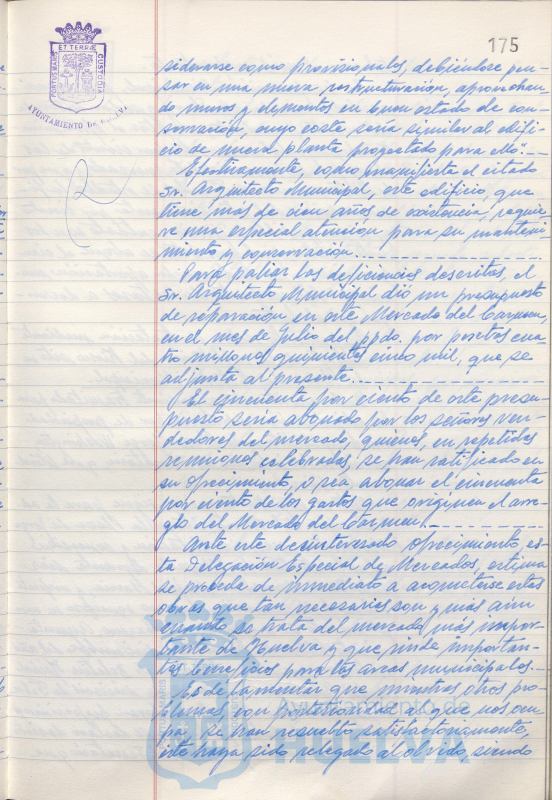 175
PORTUS MARIS
ET TERRÆ
CUSTODIA
AYUNTAMIENTO DE HUELVA
siderarse como provisionales, debiéndose pen-
sar en una nueva restructuración, aprovechan-
do muros y elementos en buen estado de con-
servación, cuyo coste sería similar al edifi-
cio de nueva planta proyectado para ello".-
Efectivamente, como manifiesta el citado
Sr. Arquitecto Municipal, este edificio, que
tiene más de cien años de existencia, requie-
re una especial atención para su manteni-
miento y conservación.
Para paliar las deficiencias descritas, el
Sr. Arquitecto Municipal dió un presupuesto
de reparación en este Mercado del Carmen,
en el mes de Julio del ppdo. por pesetas cua-
tro millones quinientas cinco mil, que se
adjunta al presente.
El cincuenta por ciento de este presu-
puesto sería abonado por los señores ven-
dedores del mercado, quienes, en repetidas
reuniones celebradas, se han ratificado en
su ofrecimiento, o sea, abonar el cincuenta
por ciento de los gastos que origine el arre-
glo del Mercado del Carmen.
Ante este desinteresado ofrecimiento es-
ta Delegación Especial de Mercados, estima
se proceda de inmediato a acometerse estas
obras que tan necesarias son y más aún
cuando se trata del mercado más impor-
tante de Huelva y que rinde importan-
tes beneficios para las arcas municipales.
Es de lamentar que mientras otros pro-
blemas con posterioridad al que nos ocu-
pa, se han resuelto satisfactoriamente,
éste haya sido relegado al olvido, siendo
Ayuntamiento de
HUELVA